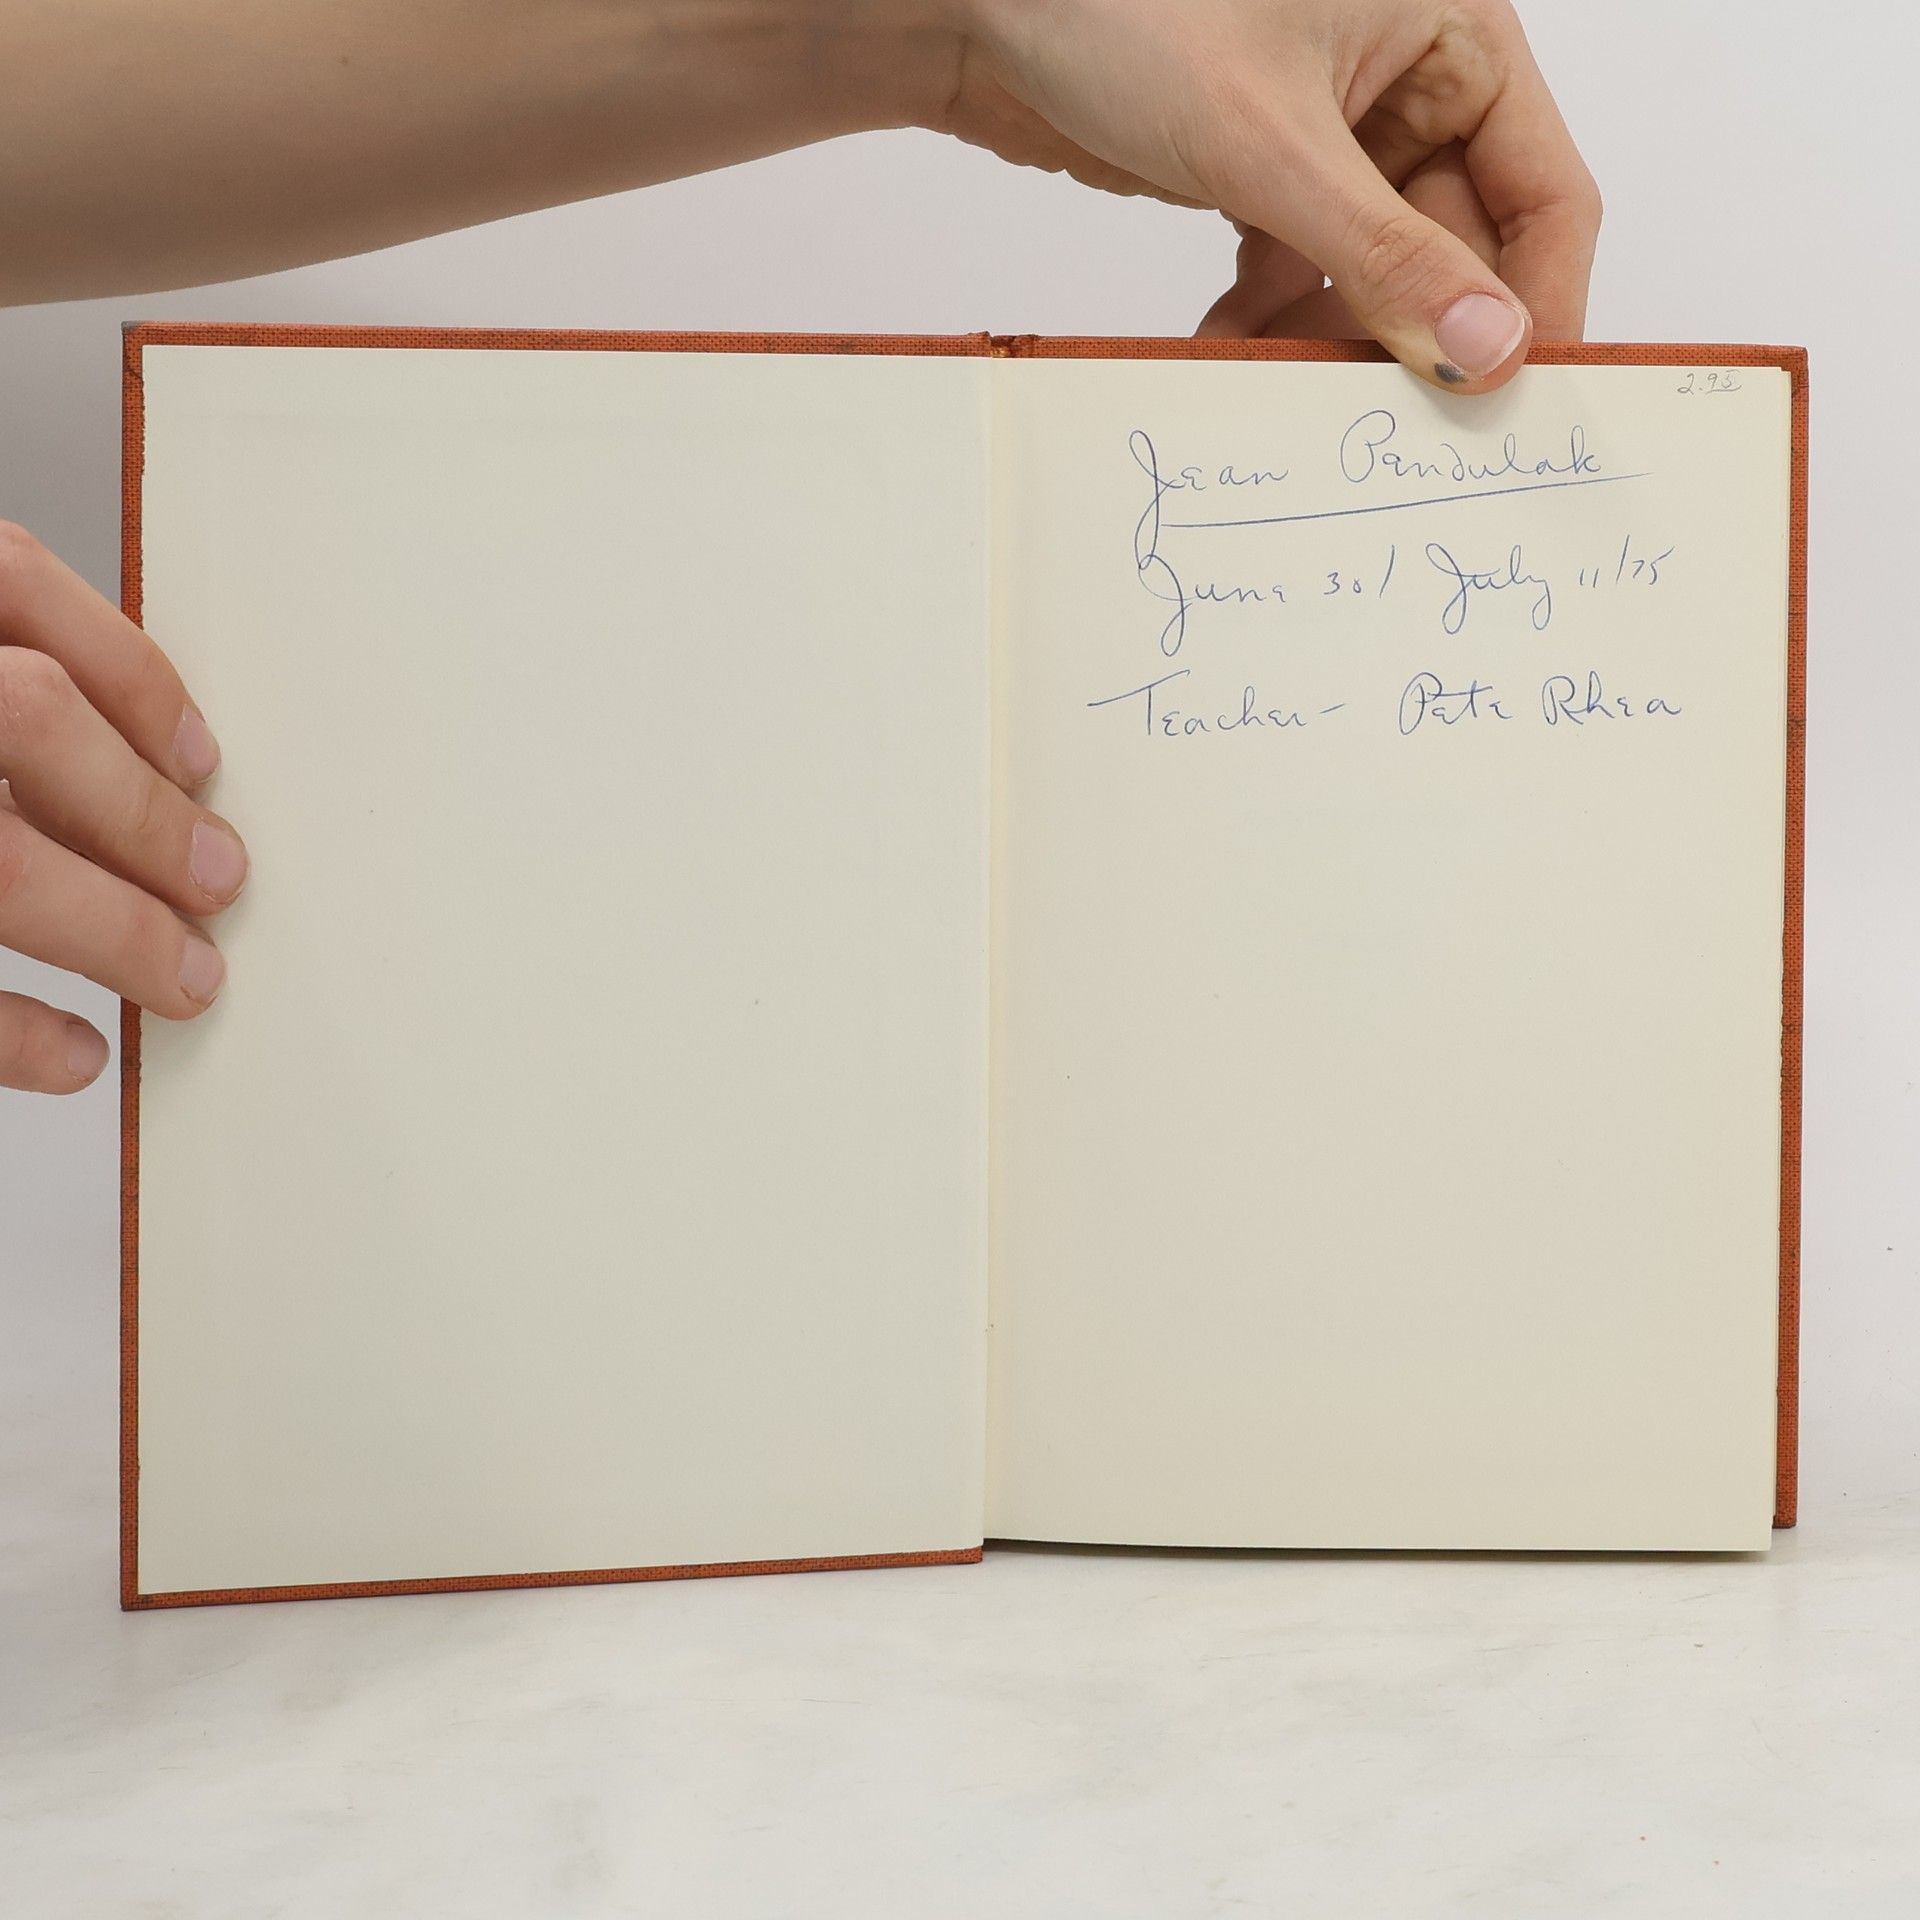 2.95
Jean Pendulak
June 30/ July 11/75
Teacher- Pete Rhea